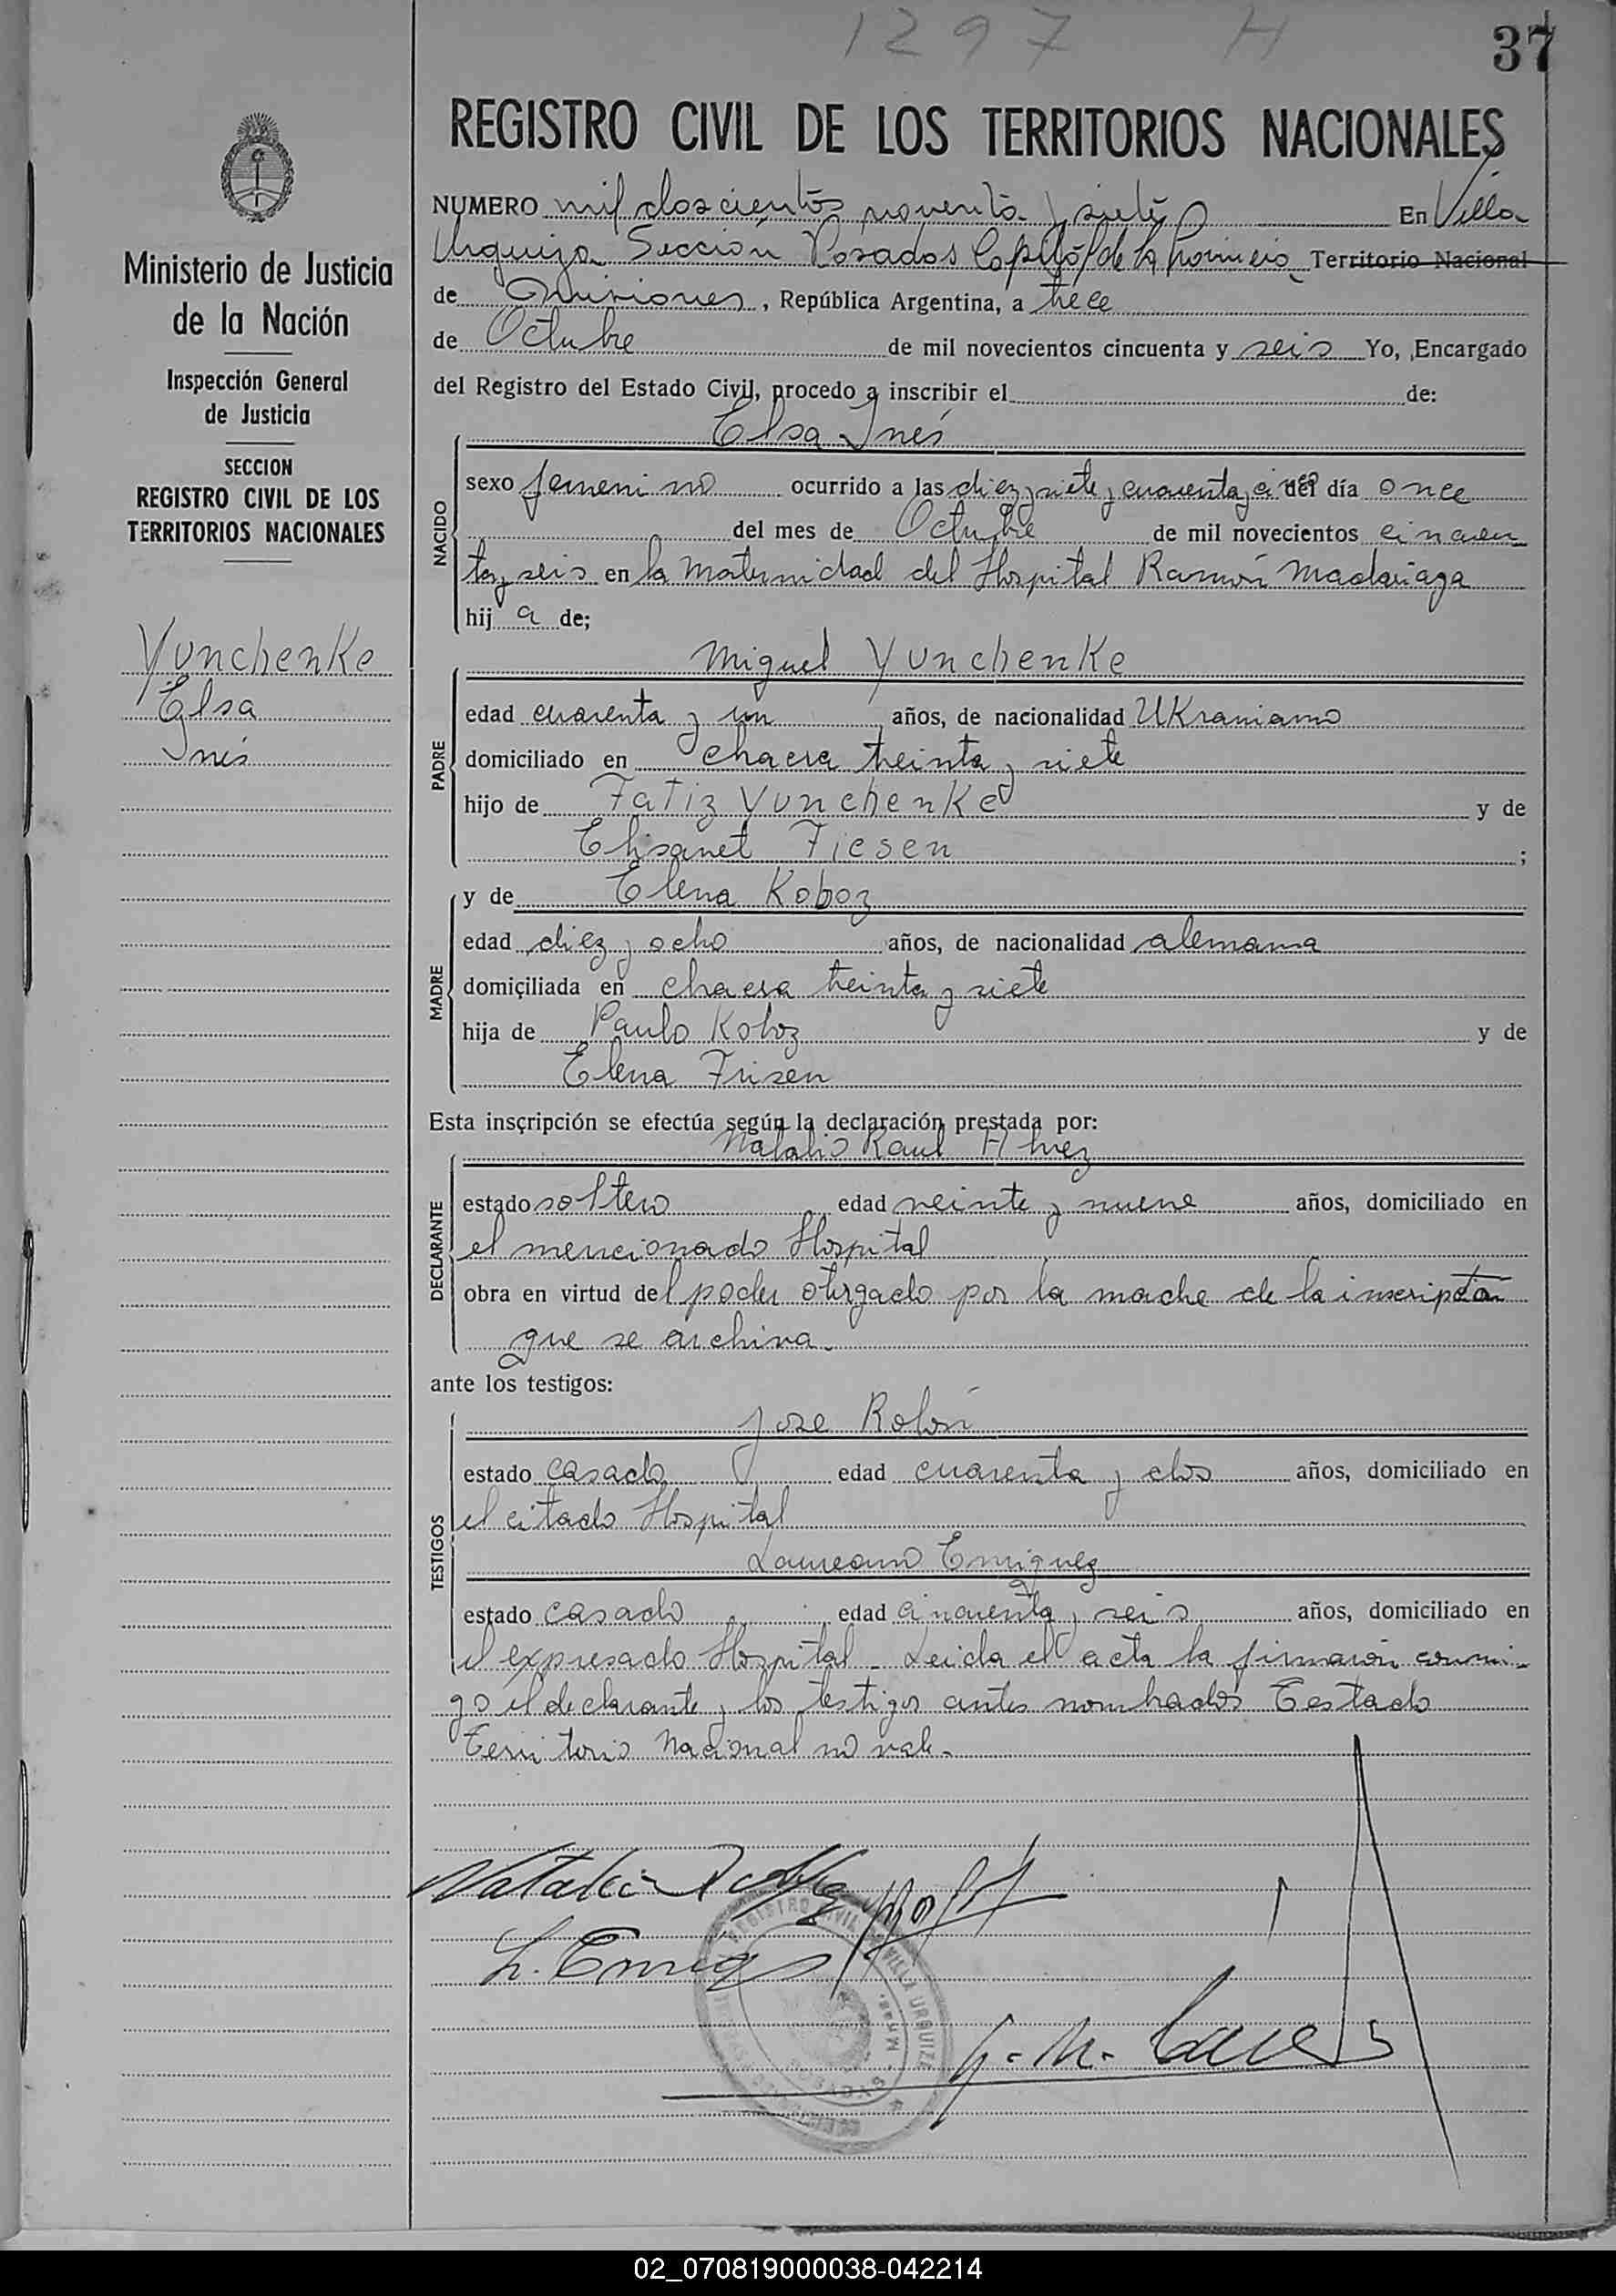 1297 H
37
REGISTRO CIVIL DE LOS TERRITORIOS NACIONALES
Ministerio de Justicia
de la Nación
Inspección General
de Justicia
SECCION
REGISTRO CIVIL DE LOS
TERRITORIOS NACIONALES
Yunchenke
Elsa
Inés
NUMERO mil doscientos noventa y siete En Villa
Urquiza Sección Posadas Capital de la Provincia Territorio Nacional
de Misiones, República Argentina, a trece
de Octubre de mil novecientos cincuenta y seis Yo, Encargado
del Registro del Estado Civil, procedo a inscribir el de:
Elsa Inés
NACIDO
sexo femenino ocurrido a las diez y siete y cuarenta y ci del día once
del mes de Octubre de mil novecientos cincuen
ta y seis en la maternidad del Hospital Ramón Madariaga
hij a de;
Miguel Yunchenke
PADRE
edad cuarenta y un años, de nacionalidad Ukraniano
domiciliado en chacra treinta y siete
hijo de Fatiz Yunchenke y de
Elisanet Fiesen ;
MADRE
y de Elena Koboz
edad diez y ocho años, de nacionalidad alemana
domiciliada en chacra treinta y siete
hija de Paulo Koboz y de
Elena Frisen
Esta inscripción se efectúa según la declaración prestada por:
Natalio Raul
DECLARANTE
estado soltero edad veinte y nueve años, domiciliado en
el mencionado Hospital
obra en virtud del poder otorgado por la madre de la inscripción
que se archiva.
ante los testigos:
Jose Rolón
TESTIGOS
estado casado edad cuarenta y dos años, domiciliado en
el citado Hospital
Laureano Enriquez
estado casado edad cincuenta y seis años, domiciliado en
el expresado Hospital. Leida el acta la firmaron conmi-
go el declarante y los testigos antes nombrados Testado
Territorio Nacional no vale.
Natalio
L. Enriq
REGISTRO CIVIL VILLA URQUIZA
POSADAS Mnes.
02_070819000038-042214